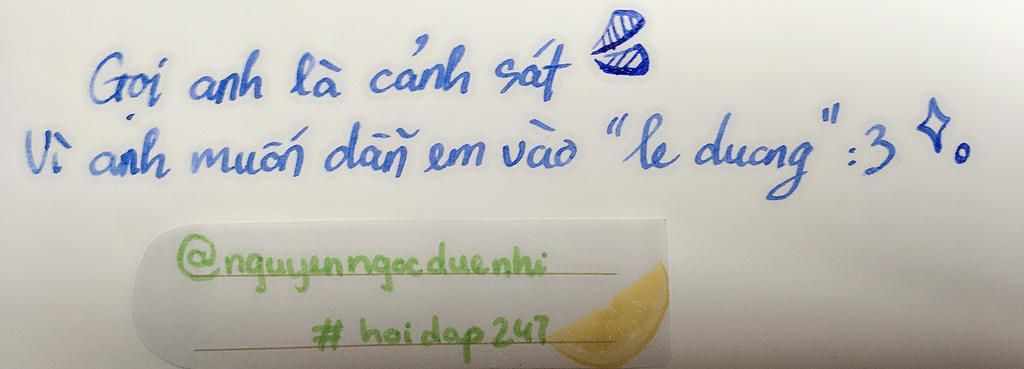 Gọi anh là cảnh sát
Vì anh muốn dẫn em vào "le duang" :3
@nguyenngocduenhi
#hoidap247